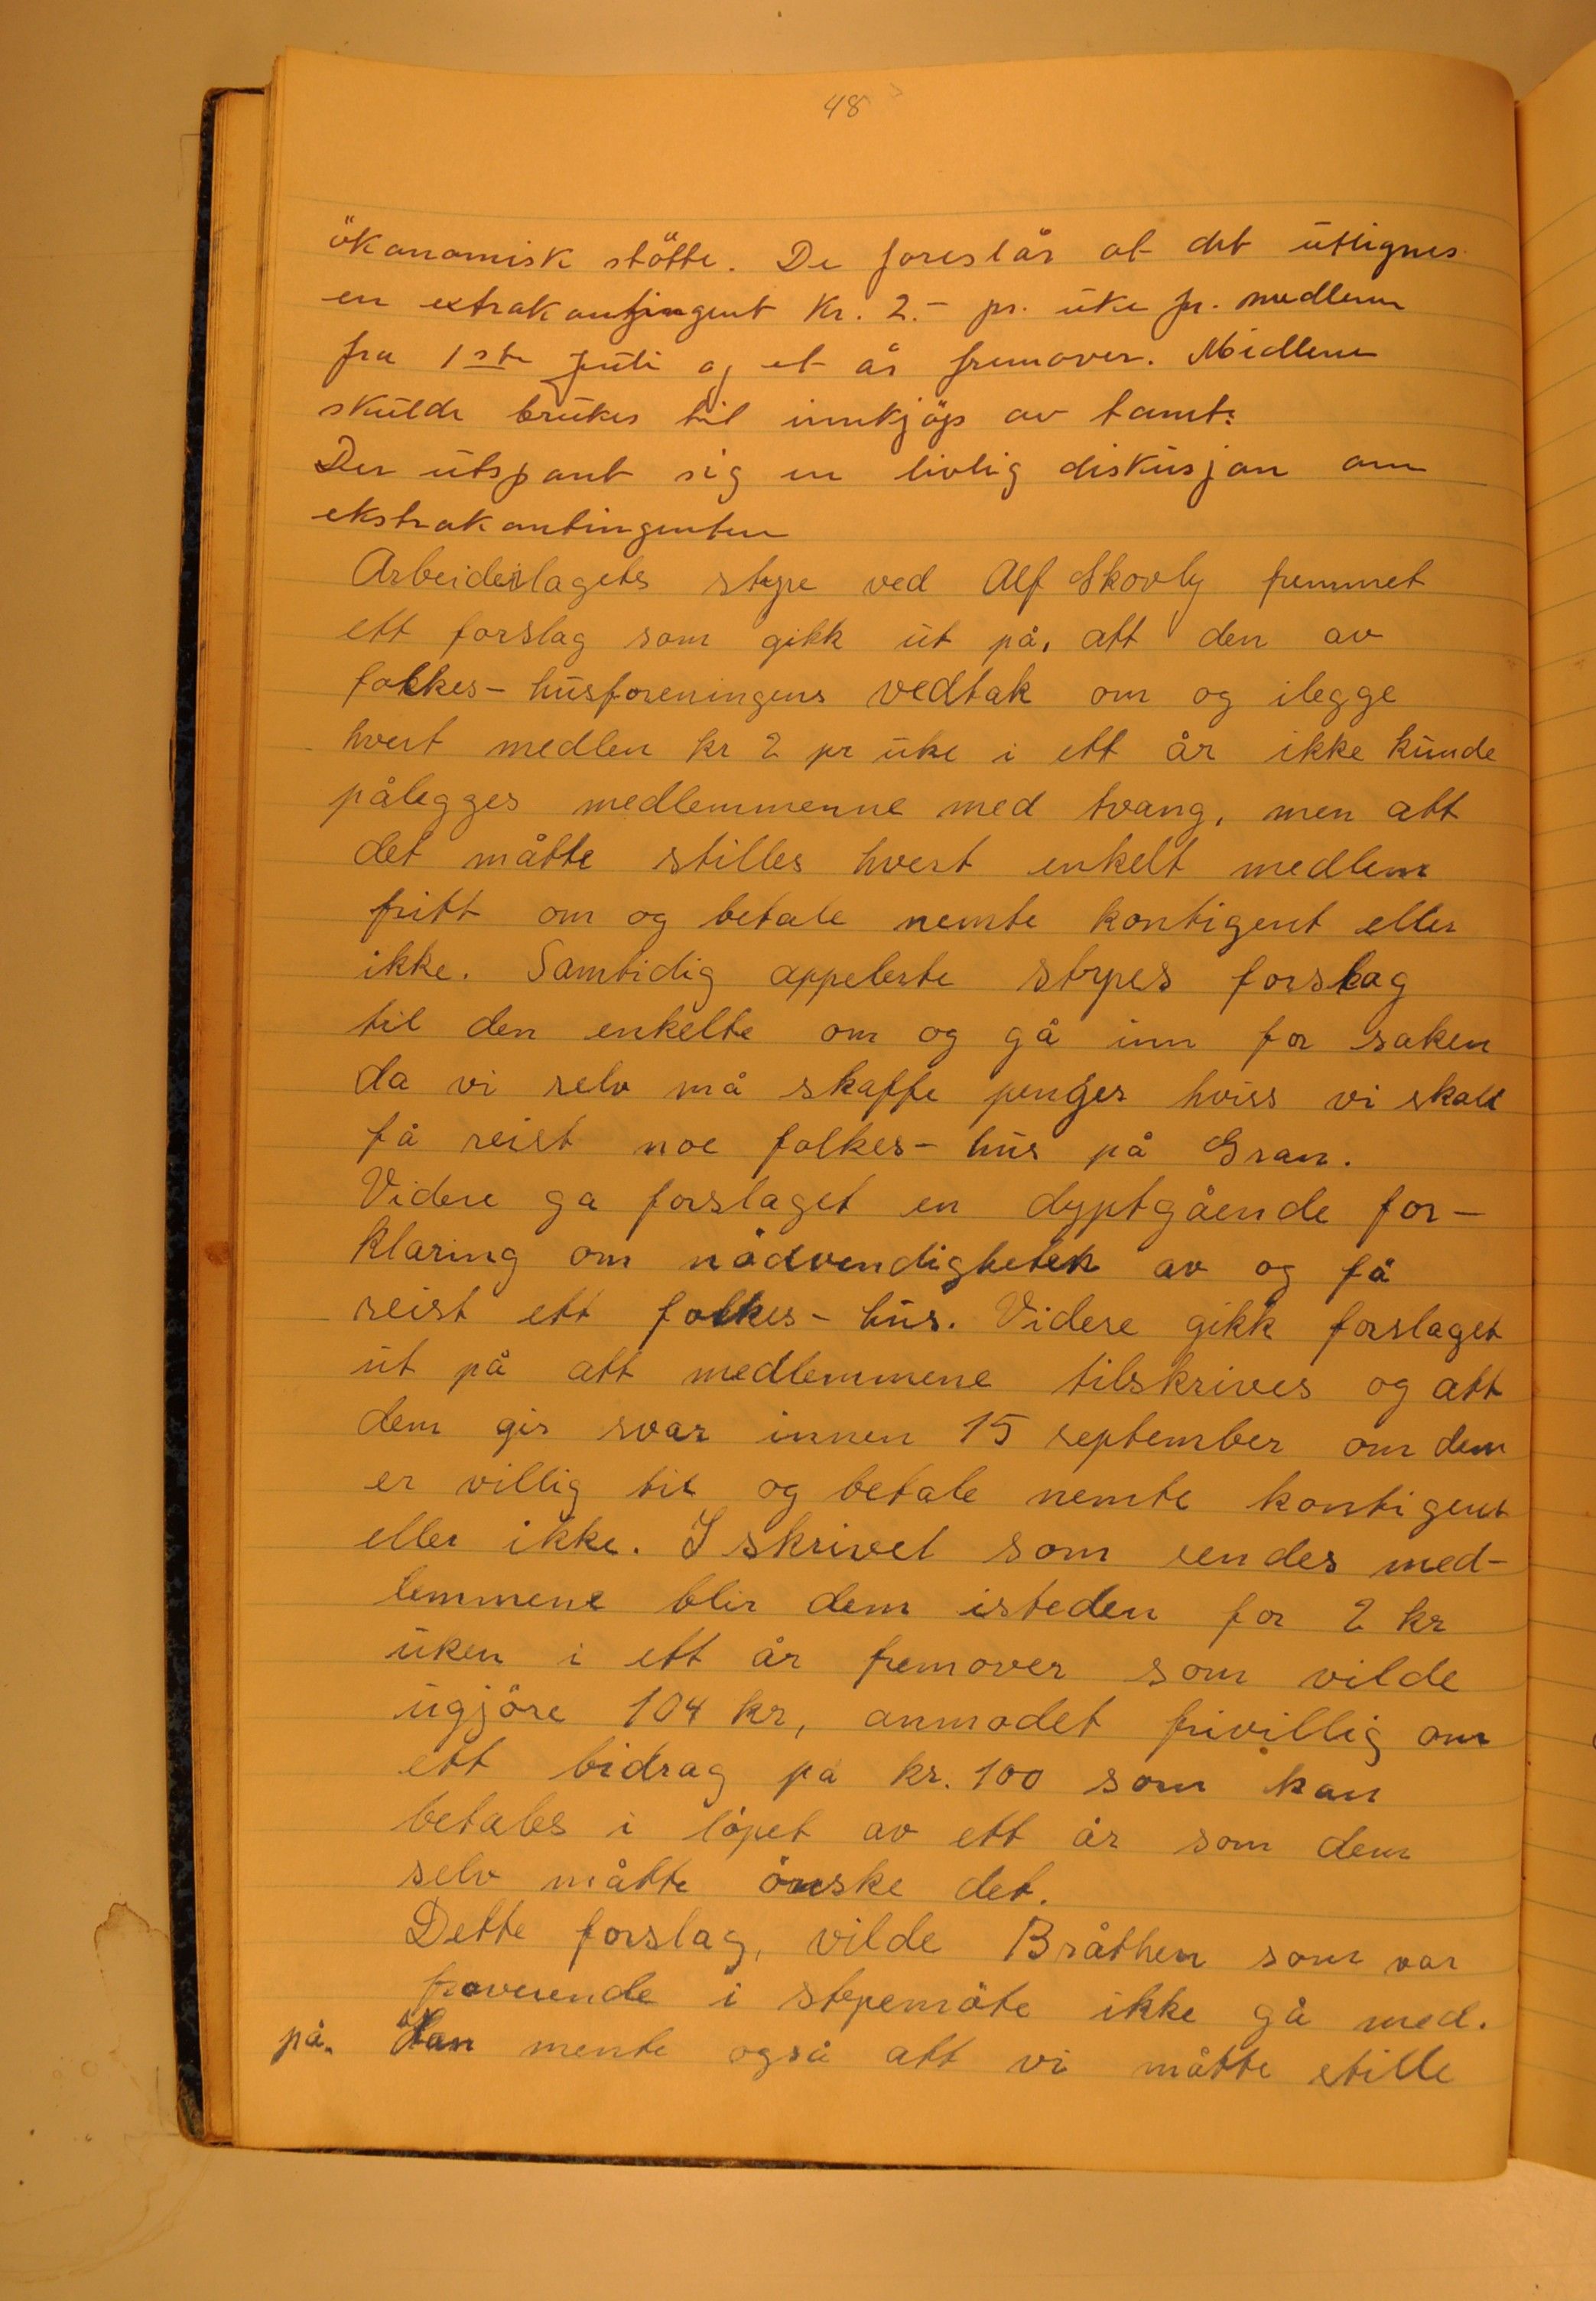 48
ökonomisk stötte. De foreslår at det utlignes
en extrakontingent Kr. 2.- pr. uke pr. medlem
fra 1ste juli og et år fremover. Midlene
skulde brukes til innkjöp av tomt.
Der utspant sig en livlig diskusjon om
ekstrakontingenten
Arbeiderlagets stype ved Alf Skovly femmet
ett forslag som gikk ut på, att den av
folkes-husforeningens vedtak om og ilegge
hvert medlen kr 2 pr uke i ett år ikke kunde
pålegges medlemmenne med tvang, men att
det måtte stilles hvert enkelt medlem
fritt om og betale nemte kontigent eller
ikke. Samtidig appelerte stypes forslag
til den enkelte om og gå inn for saken
da vi selv må skaffe penger hviss vi skall
få reist noe folkes-hus på Gran.
Videre ga forslaget en dyptgående for-
klaring om nödvendigheten av og få
reist ett folkes-hus. Videre gikk forslaget
ut på att medlemmene tilskrives og att
dem gir svar innen 15 september om dem
er villig til og betale nemte kontigent
eller ikke. I skrivet som sendes med-
lemmene blir dem isteden for 2 kr
uken i ett år fremover som vilde
ugjöre 104 kr, anmodet frivillig om
ett bidrag på kr. 100 som kan
betales i löpet av ett år som dem
selv måtte önske det.
Dette forslag, vilde Bråthen som var
fraverende i stypemöte ikke gå med.
på. Han mente også att vi måtte stille